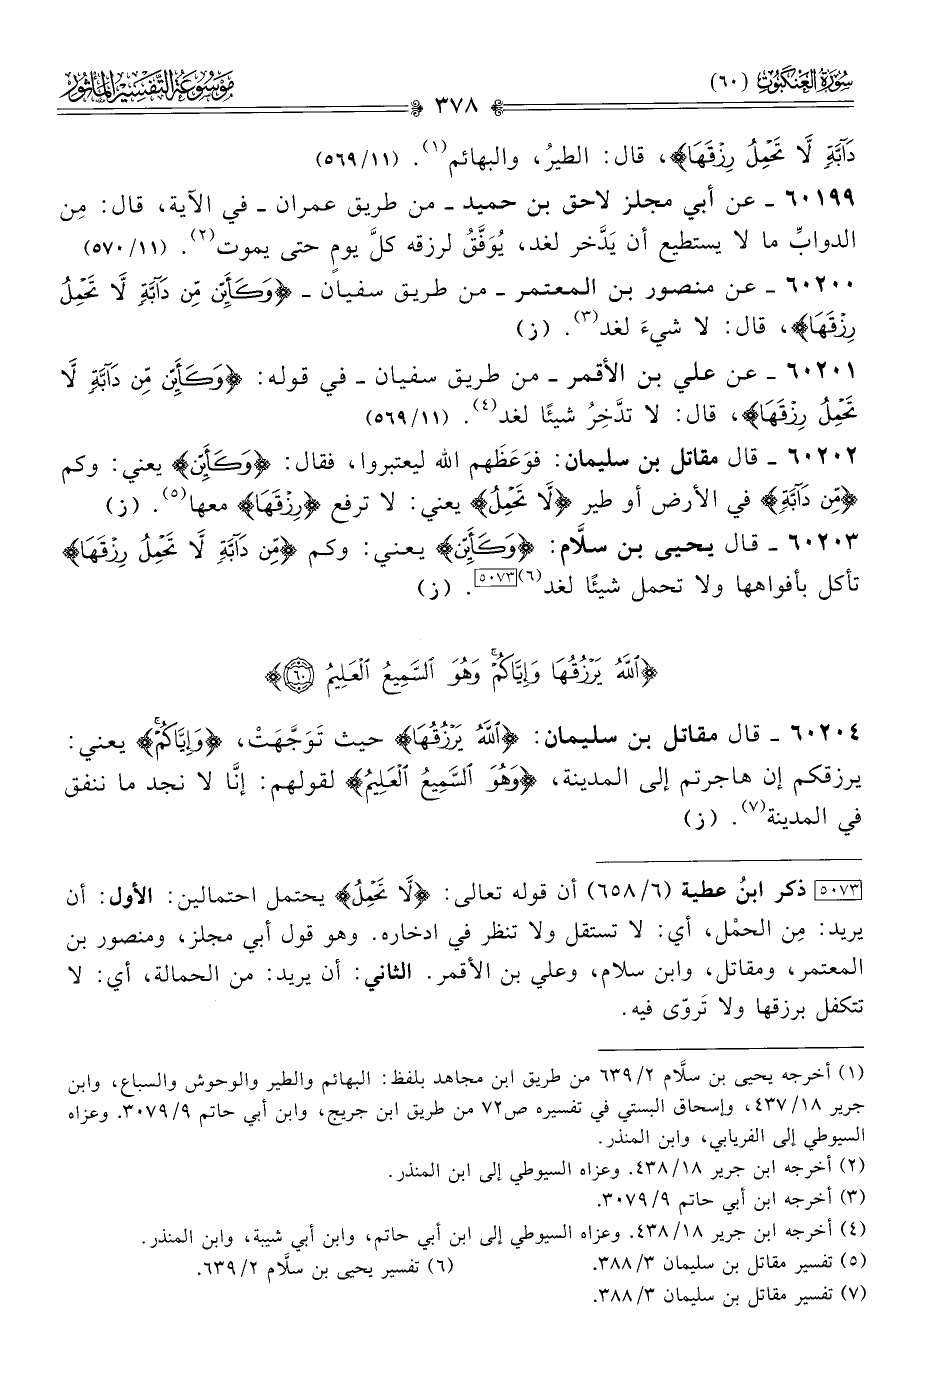 سُورَةُ العَنكَبُوتِ (٦٠)
٣٧٨
مَوْسُوعَة التَّفْسِير المَأْثُور
دَآبَّةٍ لَّا تَحْمِلُ رِزْقَهَا﴾، قال: الطيرُ، والبهائم(١). (٥٦٩/١١)
٦٠١٩٩ ـ عن أبي مجلز لاحق بن حميد ـ من طريق عمران ـ في الآية، قال: مِن
الدوابِّ ما لا يستطيع أن يَدَّخر لغد، يُوَفَّقُ لرزقه كلَّ يومٍ حتى يموت(٢). (٥٧٠/١١)
٦٠٢٠٠ ـ عن منصور بن المعتمر ـ من طريق سفيان ـ ﴿وَكَأَيِّن مِّن دَآبَّةٍ لَّا تَحْمِلُ
رِزْقَهَا﴾، قال: لا شيءَ لغد(٣). (ز)
٦٠٢٠١ ـ عن علي بن الأقمر ـ من طريق سفيان ـ في قوله: ﴿وَكَأَيِّن مِّن دَآبَّةٍ لَّا
تَحْمِلُ رِزْقَهَا﴾، قال: لا تدَّخِرُ شيئًا لغد(٤). (٥٦٩/١١)
٦٠٢٠٢ ـ قال مقاتل بن سليمان: فوَعَظَهم الله ليعتبروا، فقال: ﴿وَكَأَيِّن﴾ يعني: وكم
﴿مِّن دَآبَّةٍ﴾ في الأرض أو طير ﴿لَّا تَحْمِلُ﴾ يعني: لا ترفع ﴿رِزْقَهَا﴾ معها(٥). (ز)
٦٠٢٠٣ ـ قال يحيى بن سلَّام: ﴿وَكَأَيِّن﴾ يعني: وكم ﴿مِّن دَآبَّةٍ لَّا تَحْمِلُ رِزْقَهَا﴾
تأكل بأفواهها ولا تحمل شيئًا لغد(٦)[٥٠٧٣]. (ز)
﴿ٱللَّهُ يَرْزُقُهَا وَإِيَّاكُمْ ۚ وَهُوَ ٱلسَّمِيعُ ٱلْعَلِيمُ ۝٦٠﴾
٦٠٢٠٤ ـ قال مقاتل بن سليمان: ﴿ٱللَّهُ يَرْزُقُهَا﴾ حيث تَوَجَّهَتْ، ﴿وَإِيَّاكُمْ ۚ﴾ يعني:
يرزقكم إن هاجرتم إلى المدينة، ﴿وَهُوَ ٱلسَّمِيعُ ٱلْعَلِيمُ﴾ لقولهم: إنَّا لا نجد ما ننفق
في المدينة(٧). (ز)
[٥٠٧٣] ذكر ابنُ عطية (٦٥٨/٦) أن قوله تعالى: ﴿لَّا تَحْمِلُ﴾ يحتمل احتمالين: الأول: أن
يريد: مِن الحمْل، أي: لا تستقل ولا تنظر في ادخاره. وهو قول أبي مجلز، ومنصور بن
المعتمر، ومقاتل، وابن سلام، وعلي بن الأقمر. الثاني: أن يريد: من الحمالة، أي: لا
تتكفل برزقها ولا تَروّى فيه.
(١) أخرجه يحيى بن سلَّام ٦٣٩/٢ من طريق ابن مجاهد بلفظ: البهائم والطير والوحوش والسباع، وابن
جرير ٤٣٧/١٨، وإسحاق البستي في تفسيره ص٧٢ من طريق ابن جريج، وابن أبي حاتم ٣٠٧٩/٩. وعزاه
السيوطي إلى الفريابي، وابن المنذر.
(٢) أخرجه ابن جرير ٤٣٨/١٨. وعزاه السيوطي إلى ابن المنذر.
(٣) أخرجه ابن أبي حاتم ٣٠٧٩/٩.
(٤) أخرجه ابن جرير ٤٣٨/١٨. وعزاه السيوطي إلى ابن أبي حاتم، وابن أبي شيبة، وابن المنذر.
(٥) تفسير مقاتل بن سليمان ٣٨٨/٣. (٦) تفسير يحيى بن سلَّام ٦٣٩/٢.
(٧) تفسير مقاتل بن سليمان ٣٨٨/٣.